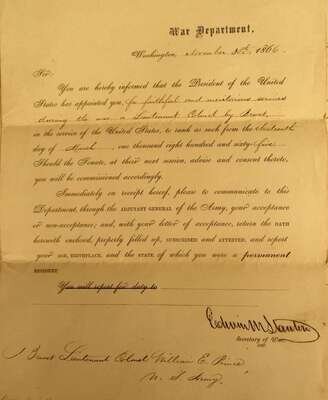 War Department,
Washington, November 30th, 1866.
Sir:
You are hereby informed that the President of the United
States has appointed you, for faithful and meritorious services
during the war, a Lieutenant Colonel by Brevet,
in the service of the United States, to rank as such from the thirteenth
day of March, one thousand eight hundred and sixty-five.
Should the Senate, at their next session, advise and consent thereto,
you will be commissioned accordingly.
Immediately on receipt hereof, please to communicate to this
Department, through the ADJUTANT-GENERAL of the Army, your acceptance
or non-acceptance; and, with your letter of acceptance, return the OATH
herewith enclosed, properly filled up, SUBSCRIBED and ATTESTED, and report
your AGE, BIRTHPLACE, and the STATE of which you were a permanent
RESIDENT.
You will report for duty to
Edwin M Stanton
Secretary of War
Brevet Lieutenant Colonel William E. Prince
U. S. Army.